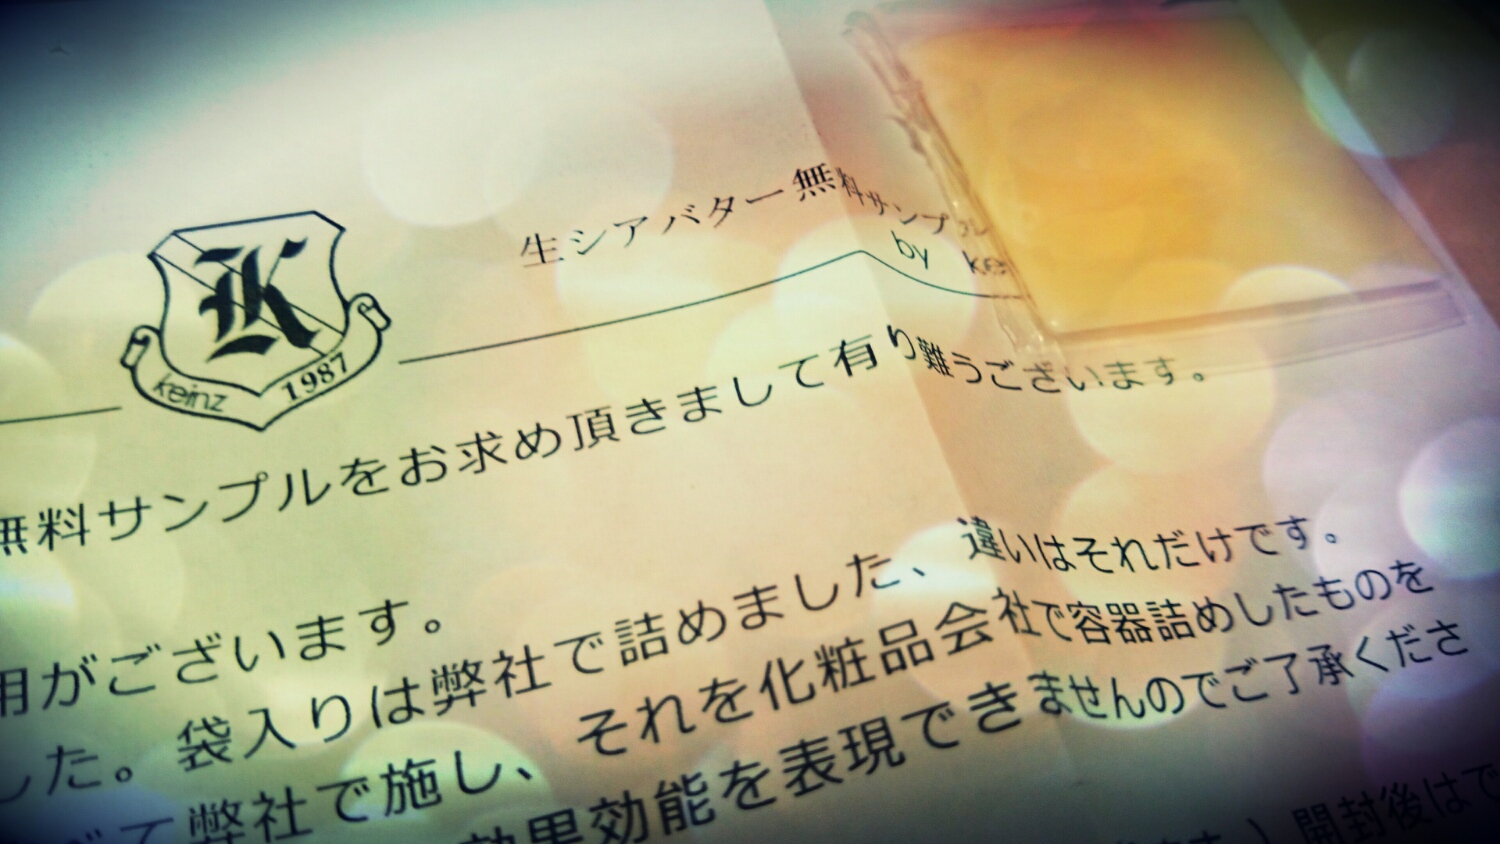 生シアバター無料サンプル
by ke
K
keinz 1987
無料サンプルをお求め頂きまして有り難うございます。
用がございます。
した。袋入りは弊社で詰めました、違いはそれだけです。
て弊社で施し、それを化粧品会社で容器詰めしたものを
効果効能を表現できませんのでご了承くださ
開封後は